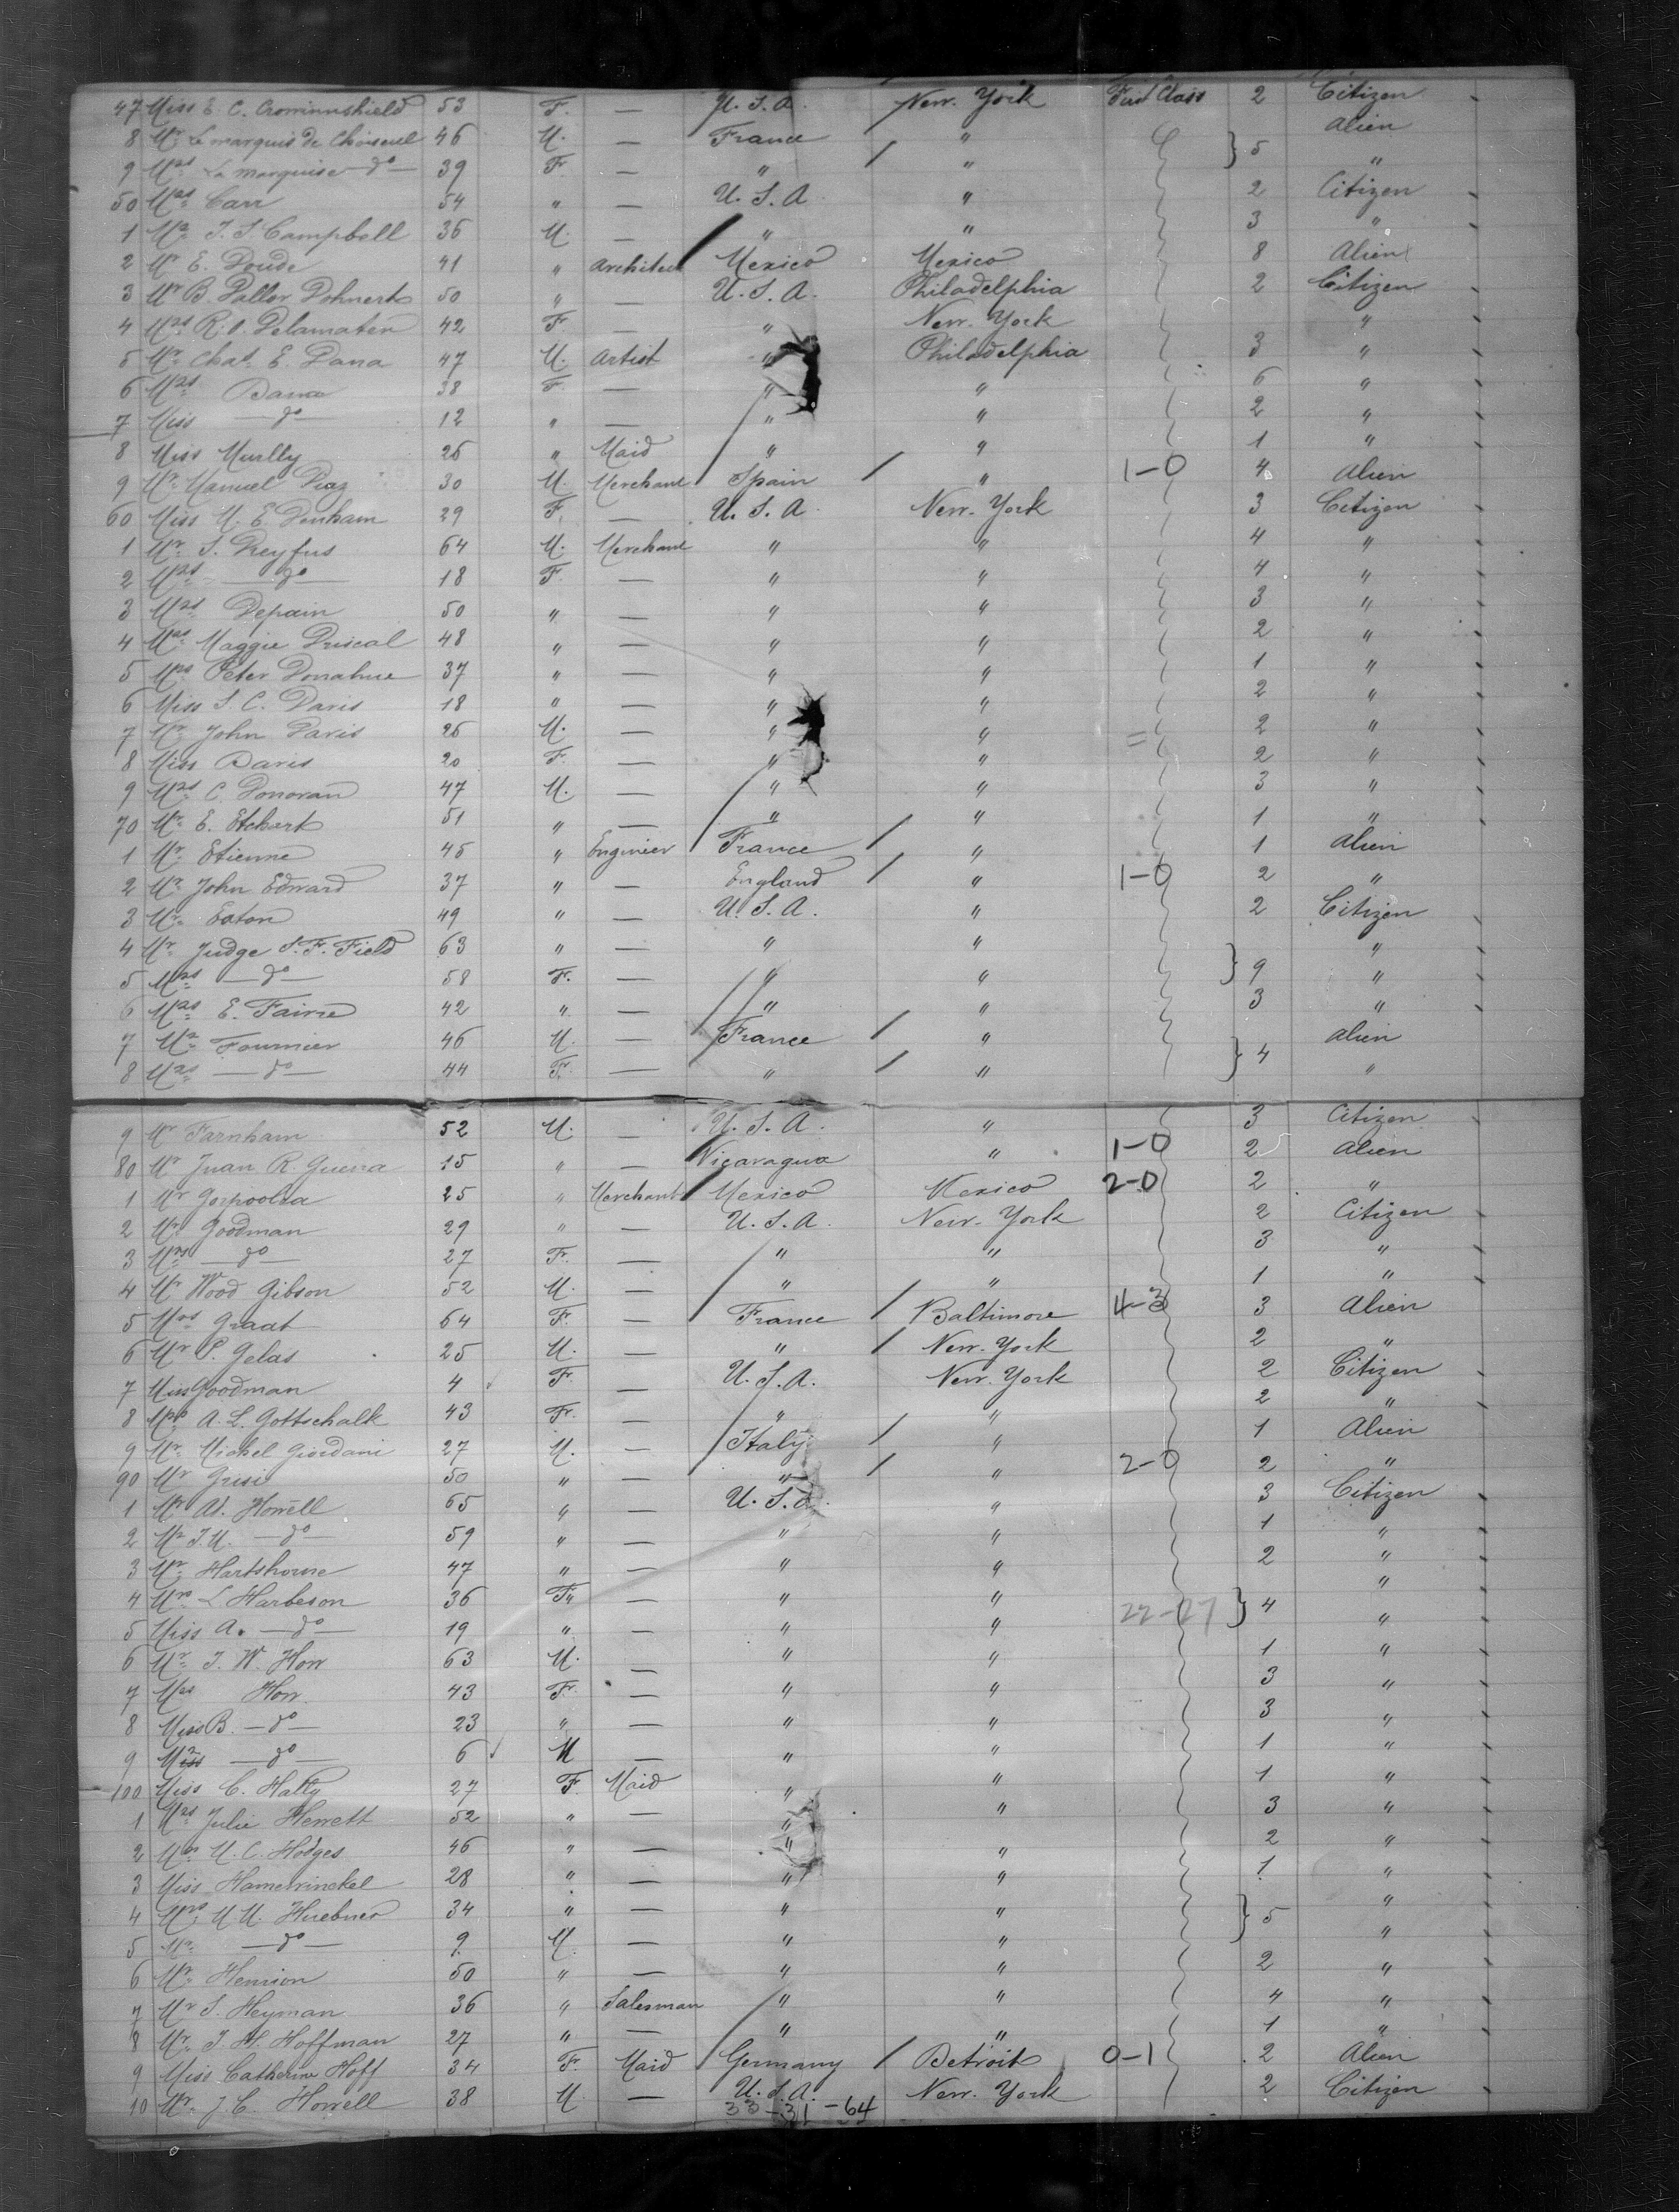 47 Miss E. C. Crowninshield 53 F. — U. S. A. New. York First Class 2 Citizen
8 Mr. Le marquis de Choiseul 46 M. — France " Alien
9 Mrs La marquise — do — 39 F. — " " } 5 "
50 Mrs Carr 54 " — U. S. A " 2 Citizen
1 Mr. T. S. Campbell 36 M. — " " 3 "
2 Mr E. Doude 41 " Architect Mexico Mexico 8 Alien
3 Mr B. Dallor Dohnert 50 " — U. S. A. Philadelphia 2 Citizen
4 Mrs R. O. Delamaten 42 F. — " New. York "
5 Mr. Chas. E. Dana 47 M. Artist " Philadelphia 3 "
6 Mrs Dana 38 F. — " " 6 "
7 Miss — do — 12 " — " " 2 "
8 Miss Murlly 26 " Maid " " 1 "
9 Mr. Manuel Diaz 30 M. Merchant Spain " 1-0 4 Alien
60 Miss M. E. Denham 29 F. — U. S. A. New. York 3 Citizen
1 Mr. S. Dreyfus 64 M. Merchant " " 4 "
2 Mrs — do — 18 F. — " " 4 "
3 Mrs Depain 50 " — " " 3 "
4 Mrs Maggie Driscal 48 " — " " 2 "
5 Mrs Peter Donahue 37 " — " " 1 "
6 Miss S. C. Davis 18 " — " " 2 "
7 Mr. John Davis 26 M. — " " 2 "
8 Miss Davis 20 F. — " " 2 "
9 Mrs C. Donovan 47 M. — " " 3 "
70 Mr. E. Etchart 51 " — " " 1 "
1 Mr. Etienne 45 " Engineer France " 1 Alien
2 Mr. John Edward 37 " — England " 1-0 2 "
3 Mr. Eaton 49 " — U. S. A. " 2 Citizen
4 Mr. Judge S. F. Field 63 " — " " "
5 Mrs — do — 58 F. — " " } 9 "
6 Mrs E. Fairie 42 " — " " 3 "
7 Mr. Fournier 46 M. — France " Alien
8 Mrs — do — 44 F. — " " } 4 "
9 Mr Farnham 52 M. — U. S. A. " 3 Citizen
80 Mr Juan R. Guerra 15 " — Nicaragua " 1-0 2 Alien
1 Mr 25 " Merchant Mexico Mexico 2-0 2 "
2 Mr. Goodman 29 " — U. S. A. New. York 2 Citizen
3 Mrs — do — 27 F. — " " 3 "
4 Mr Wood Gibson 52 M. — " " 1 "
5 Mrs Graat 64 F. — France Baltimore 4-3 3 Alien
6 Mr P. Gelas 25 M. — " New. York 2 "
7 Miss Goodman 4 F. — U. S. A. New. York 2 Citizen
8 Mrs A. L. Gottschalk 43 F. — " " 2 "
9 Mr. Michel Giordani 27 M. — Italy " 1 Alien
90 Mr Grisi 50 " — " " 2-0 2 "
1 Mr Ad. Howell 65 " — U. S. A. " 3 Citizen
2 Mr T. M. — do — 59 " — " " 1 "
3 Mr. Hartshorne 47 " — " " 2 "
4 Mrs L Harbeson 36 F. — " " "
5 Miss A. — do — 19 " — " " 22-27 } 4 "
6 Mr. T. W. Horr 63 M. — " " 1 "
7 Mrs Horr. 43 F. — " " 3 "
8 Miss B. — do — 23 " — " " 3 "
9 Mr — do — 6 M — " " 1 "
100 Miss C. Hatty 27 F. Maid " " 1 "
1 Mrs Julie Hewett 52 " — " " 3 "
2 Mrs M. C. Hodges 46 " — " " 2 "
3 Miss Hamerinckel 28 " — " " 1 "
4 Mrs M M. Huebner 34 " — " " "
5 Mr. — do — 9 M. — " " } 5 "
6 Mr. Henrion 50 " — " " 2 "
7 Mr S. Heyman 36 " Salesman " " 4 "
8 Mr. T. H. Hoffman 27 " — " " 1 "
9 Miss Catherine Hoff 34 F. Maid Germany Detroit 0-1 2 Alien
10 Mr. J. C. Howell 38 M — U. S. A. New. York 2 Citizen
33-31-64